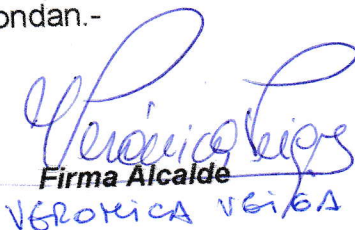 ondan.-
Verónica Veiga
Firma Alcalde
VERONICA VEIGA